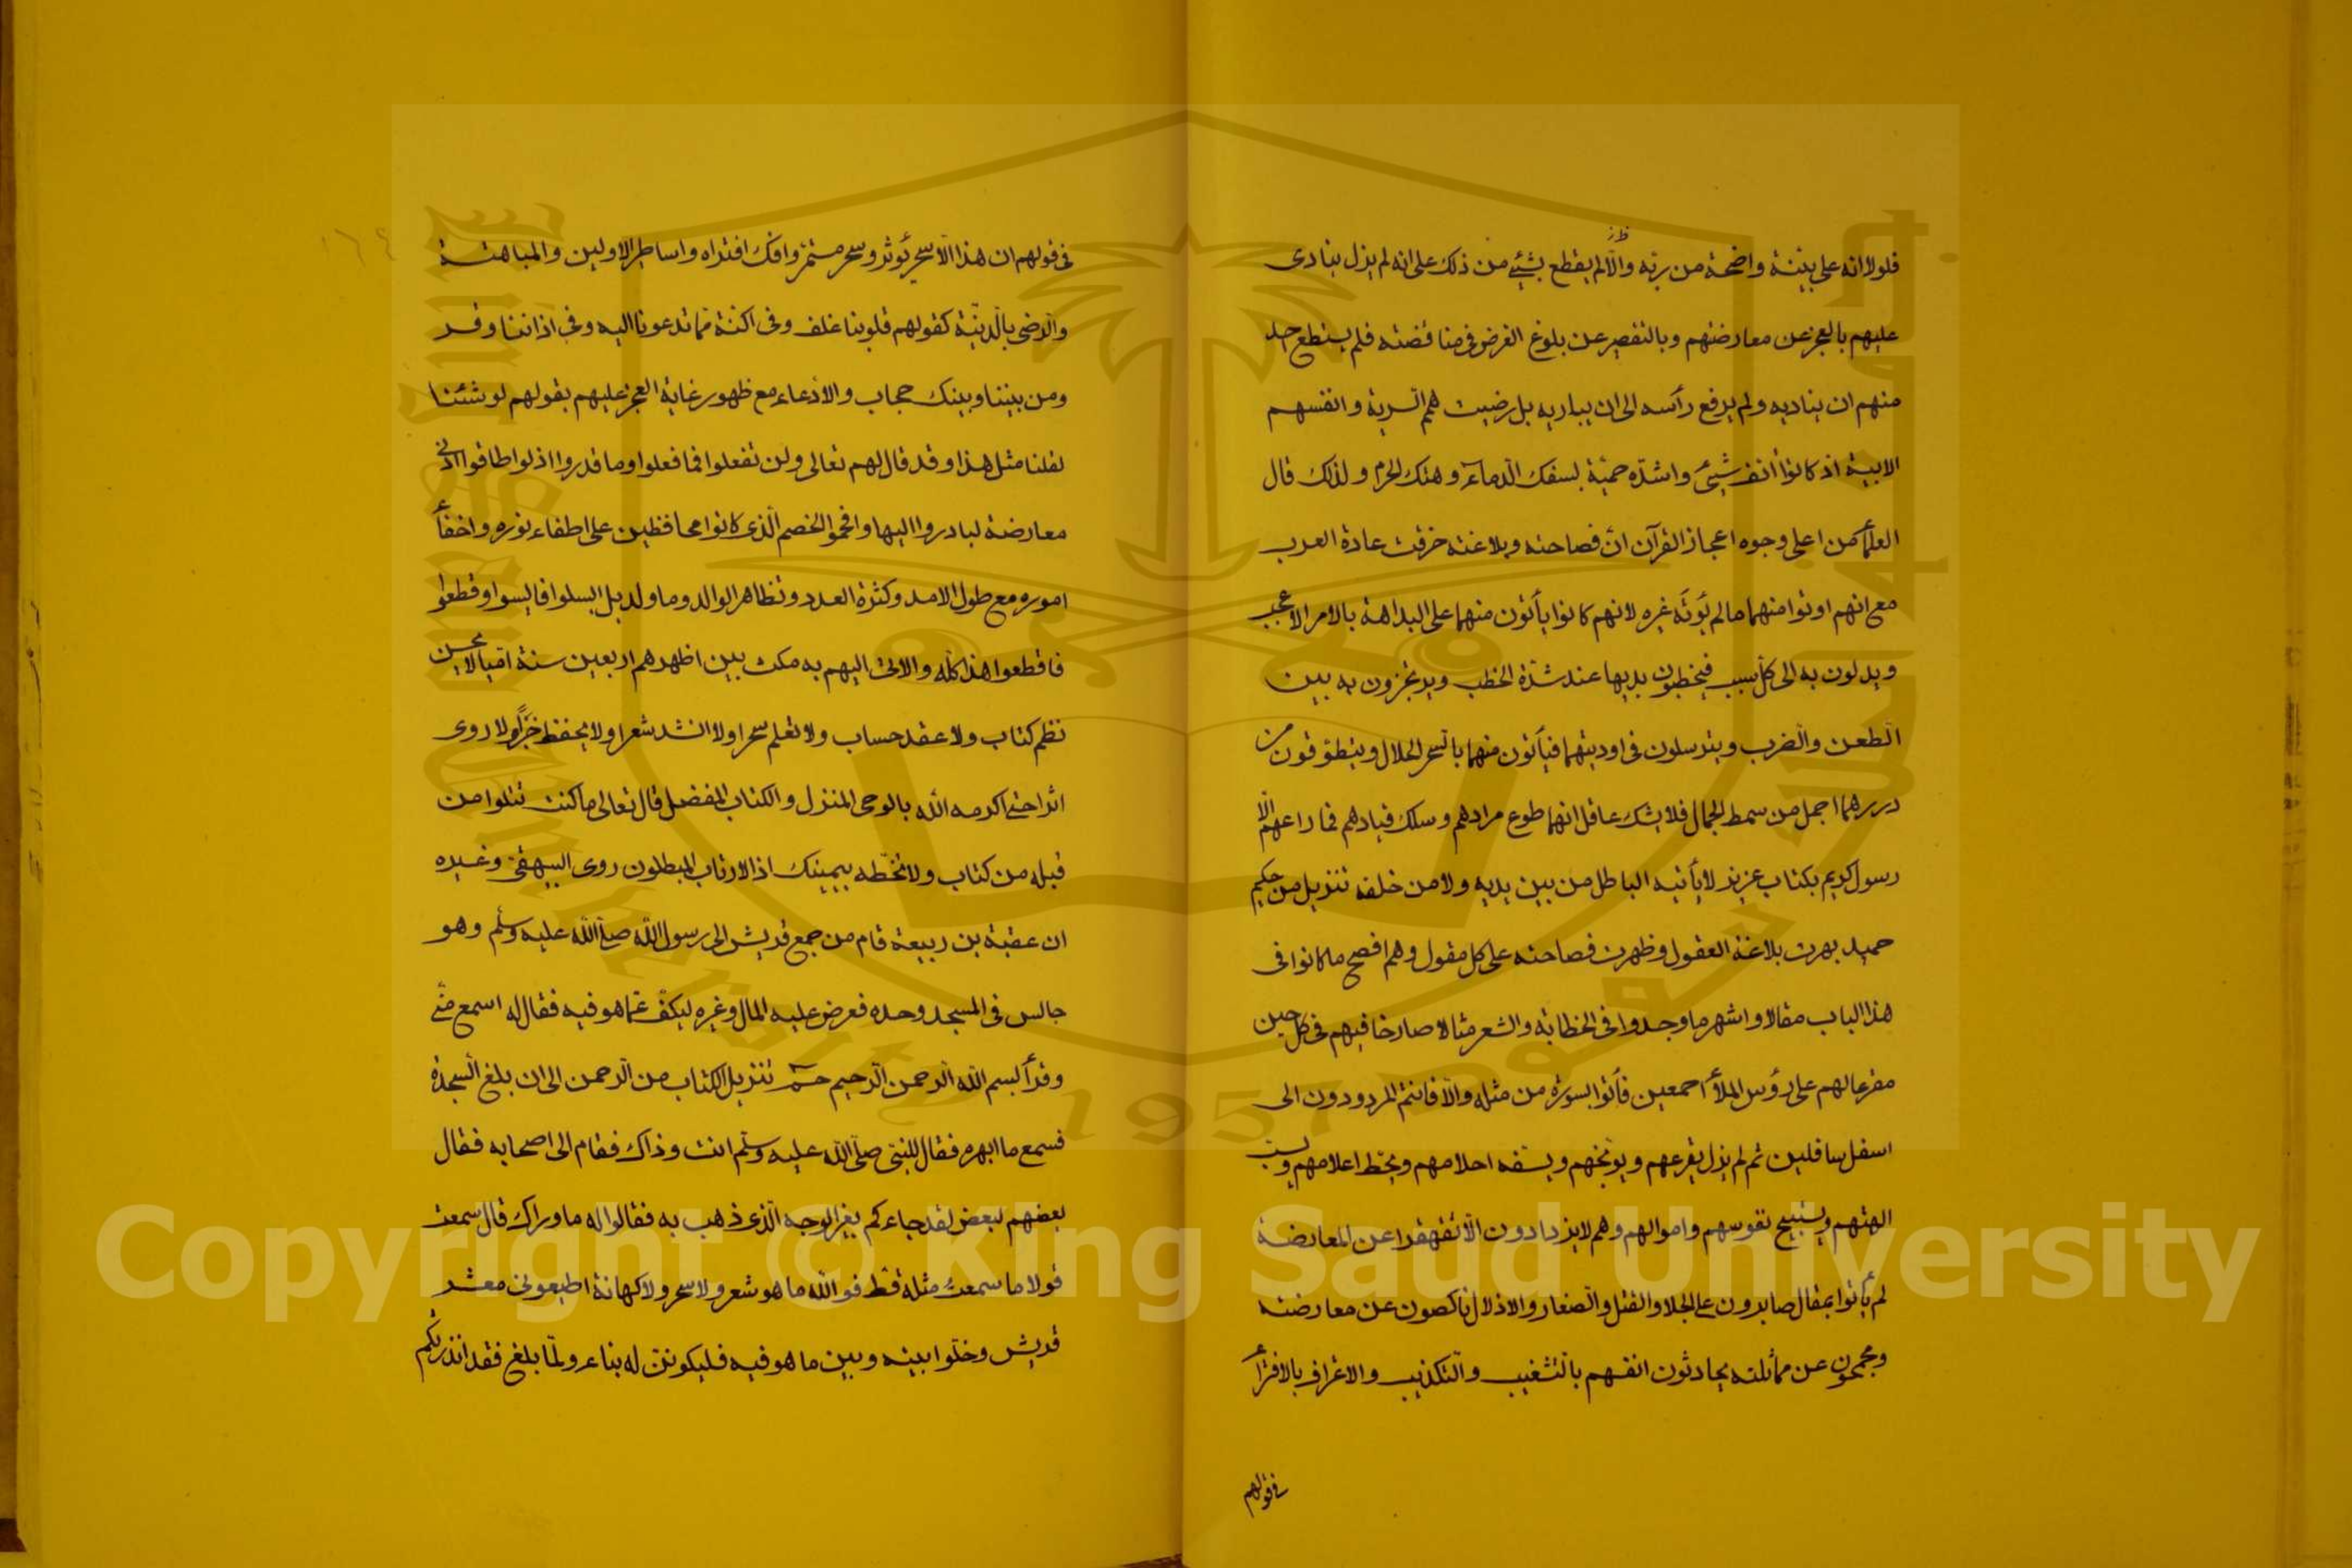 فلولا انه على بينة واضحة من ربه والا لم يقطع بشئ من ذلك على انه لم يزل ينادى
عليهم بالعجز عن معارضتهم وبالتقصير عن بلوغ الغرض فى مناقضته فلم يستطع احد
منهم ان يناديه ولم يرفع رأسه الى ان يباريه بل رضيت همم السرية وانفسهم
الابية اذ كانوا أنف شيئ واشدّه حميّة لسفك الدماء وهتك الحرم ولذلك قال
العلمأ من اعلى وجوه اعجاز القرآن انّ فصاحته وبلاغته خرقت عادة العرب
مع انهم اوتوا منهما ما لم يؤته غيره لانهم كانوا يأتون منهما على البداهة بالامر الاعجب
ويدلون به الى كل سبب فيخطبون بديها عند شدّة الخطب ويرتجزون به بين
الطعن والضرب ويترسلون فى اوديتهما فيأتون منهما بالسحر الحلال ويتطوقون من
دررهما اجمل من سمط الجمال فلا يشك عاقل انهما طوع مرادهم وسلك قيادهم فما راعهم الّا
رسول كريم بكتاب عزيز لا يأتيه الباطل من بين يديه ولا من خلفه تنزيل من حكيم
حميد بهرت بلاغة العقول وظهرت فصاحته على كل مقول وهم افصح ما كانوا فى
هذا الباب مقالا واشهر ما وجدوا فى الخطابة والشعر مثالا صارخا فيهم فى كل حين
مقرعا لهم على رؤس الملأ اجمعين فأتوا بسورة من مثله والّا فانتم المردودون الى
اسفل سافلين ثم لم يزل يقرعهم ويوبّخهم ويسفه احلامهم ويحطّ اعلامهم ويسبّ
الهتهم ويستبيح نفوسهم واموالهم وهم لا يزدادون الّا تقهقرا عن المعارضة
لم يأتوا بمقال صابرون على الجلا والقتل والصغار والاذلال ناكصون عن معارضته
ومحجمون عن مماثلته يحادثون انفسهم بالتشغيب والتكذيب والاغراف بالافتراء
فى قولهم
فى قولهم ان هذا الّا سحر يؤثر وسحر مستمر وافك افتراه واساطير الاولين والمباهتة
والرضى بالدنيّة كقولهم قلوبنا غلف وفى اكنة مما تدعونا اليه وفى اذاننا وقر
ومن بيننا وبينك حجاب والادعاء مع ظهور غاية العجز عليهم بقولهم لو شئنا
لقلنا مثل هذا وقد قال لهم تعالى ولن تفعلوا فما فعلوا وما قدروا اذ لو اطاقوا ادنى
معارضة لبادروا اليها وافحموا الخصم الّذى كانوا محافظين على اطفاء نوره واخفأ
اموره مع طول الامد وكثرة العدد وتظاهر الوالد وما ولد بل ابسلوا فما نبسوا وقطعوا
فانقطعوا هذا كله والاتى اليهم به مكث بين اظهرهم اربعين سنة اميا لا يحسن
نظم كتاب ولا عقد حساب ولا تعلم سحرا ولا انشد شعرا ولا يحفظ خبرا ولا روى
اثرا حتى اكرمه الله بالوحى المنزل والكتاب المفضل قال تعالى ما كنت تتلوا من
قبله من كتاب ولا تخطّه بيمينك اذا لارتاب المبطلون روى البيهقى وغيره
ان عقبة بن ربيعة قام من جمع قريش الى رسول الله صلّى الله عليه وسلّم وهو
جالس فى المسجد وحده فعرض عليه المال وغيره ليكفّ عمّا هو فيه فقال له اسمع منّى
وقرأ بسم الله الرحمن الرحيم حم تنزيل الكتاب من الرحمن الى ان بلغ السجدة
فسمع ما ابهره فقال للنبى صلّى الله عليه وسلّم انت وذاك فقام الى اصحابه فقال
بعضهم لبعض لقد جاءكم بغير الوجه الّذى ذهب به فقالوا له ما وراك قال سمعت
قولا ما سمعت مثله قط فو الله ما هو شعر ولا سحر ولا كهانة اطيعونى معشر
قريش وخلّوا بينه وبين ما هو فيه فليكونن له بناء ولمّا بلغ فقد انذرتكم
Copyright © King Saud University
1957